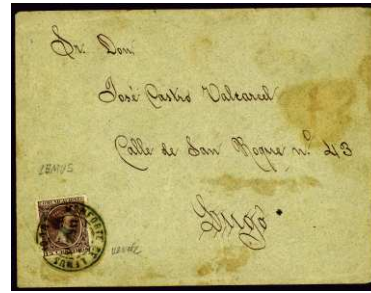 Sr. Don
José Castro Valcarcel
Calle de San Roque nº 43
LEMUS
Lugo